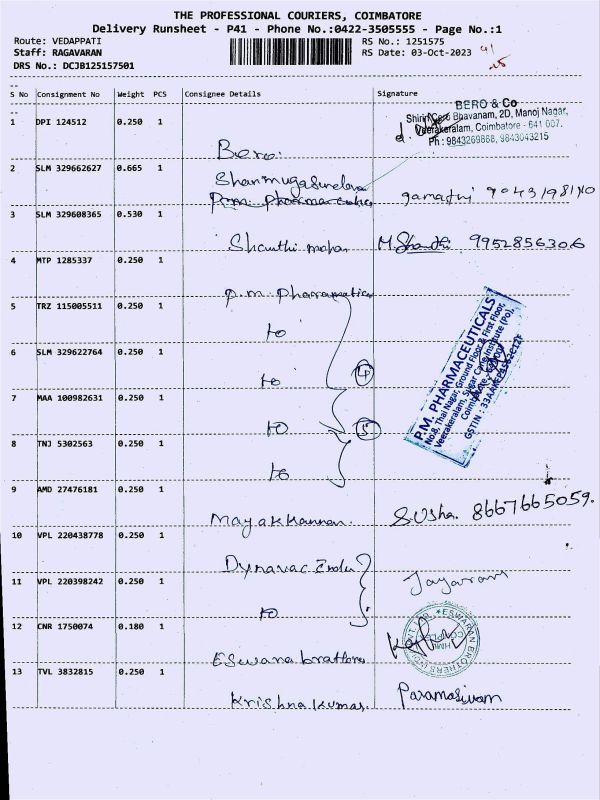 THE PROFESSIONAL COURIERS, COIMBATORE
Delivery Runsheet - P41 - Phone No.:0422-3505555 - Page No.:1
Route: VEDAPPATI
RS No.: 1251575
Staff: RAGAVARAN
RS Date: 03-Oct-2023
DRS No.: DCJB125157501
S No Consignment No Weight PCS Consignee Details Signature
BERO & Co
Bhavanam, 2D, Manoj Nagar,
1 DPI 124512 0.250 1
Veerakeralam, Coimbatore - 641 007.
Ph : 9843269868, 9843043215
Bero.
2 SLM 329662627 0.665 1
Shanmugasundara
3 SLM 329608365 0.530 1
Shanthi mohan M. Shanthi 9952856306
4 MTP 1285337 0.250 1
P.m. Pharamatica
5 TRZ 115005511 0.250 1
to
6 SLM 329622764 0.250 1
to 4
7 MAA 100982631 0.250 1
to 5
8 TNJ 5302563 0.250 1
to
P.M. PHARMACEUTICALS
No.8, Thai Nagar, Ground Floor & First Floor,
Veerakeralam, Sugar Cane Institute (PO),
9 AMD 27476181 0.250 1
Mayakkannan. Susha. 8667665059.
10 VPL 220438778 0.250 1
Dynavac
11 VPL 220398242 0.250 1
to Jayaram
12 CNR 1750074 0.180 1
ESwaran brothers
13 TVL 3832815 0.250 1
Krishna kumar. Paramasivam